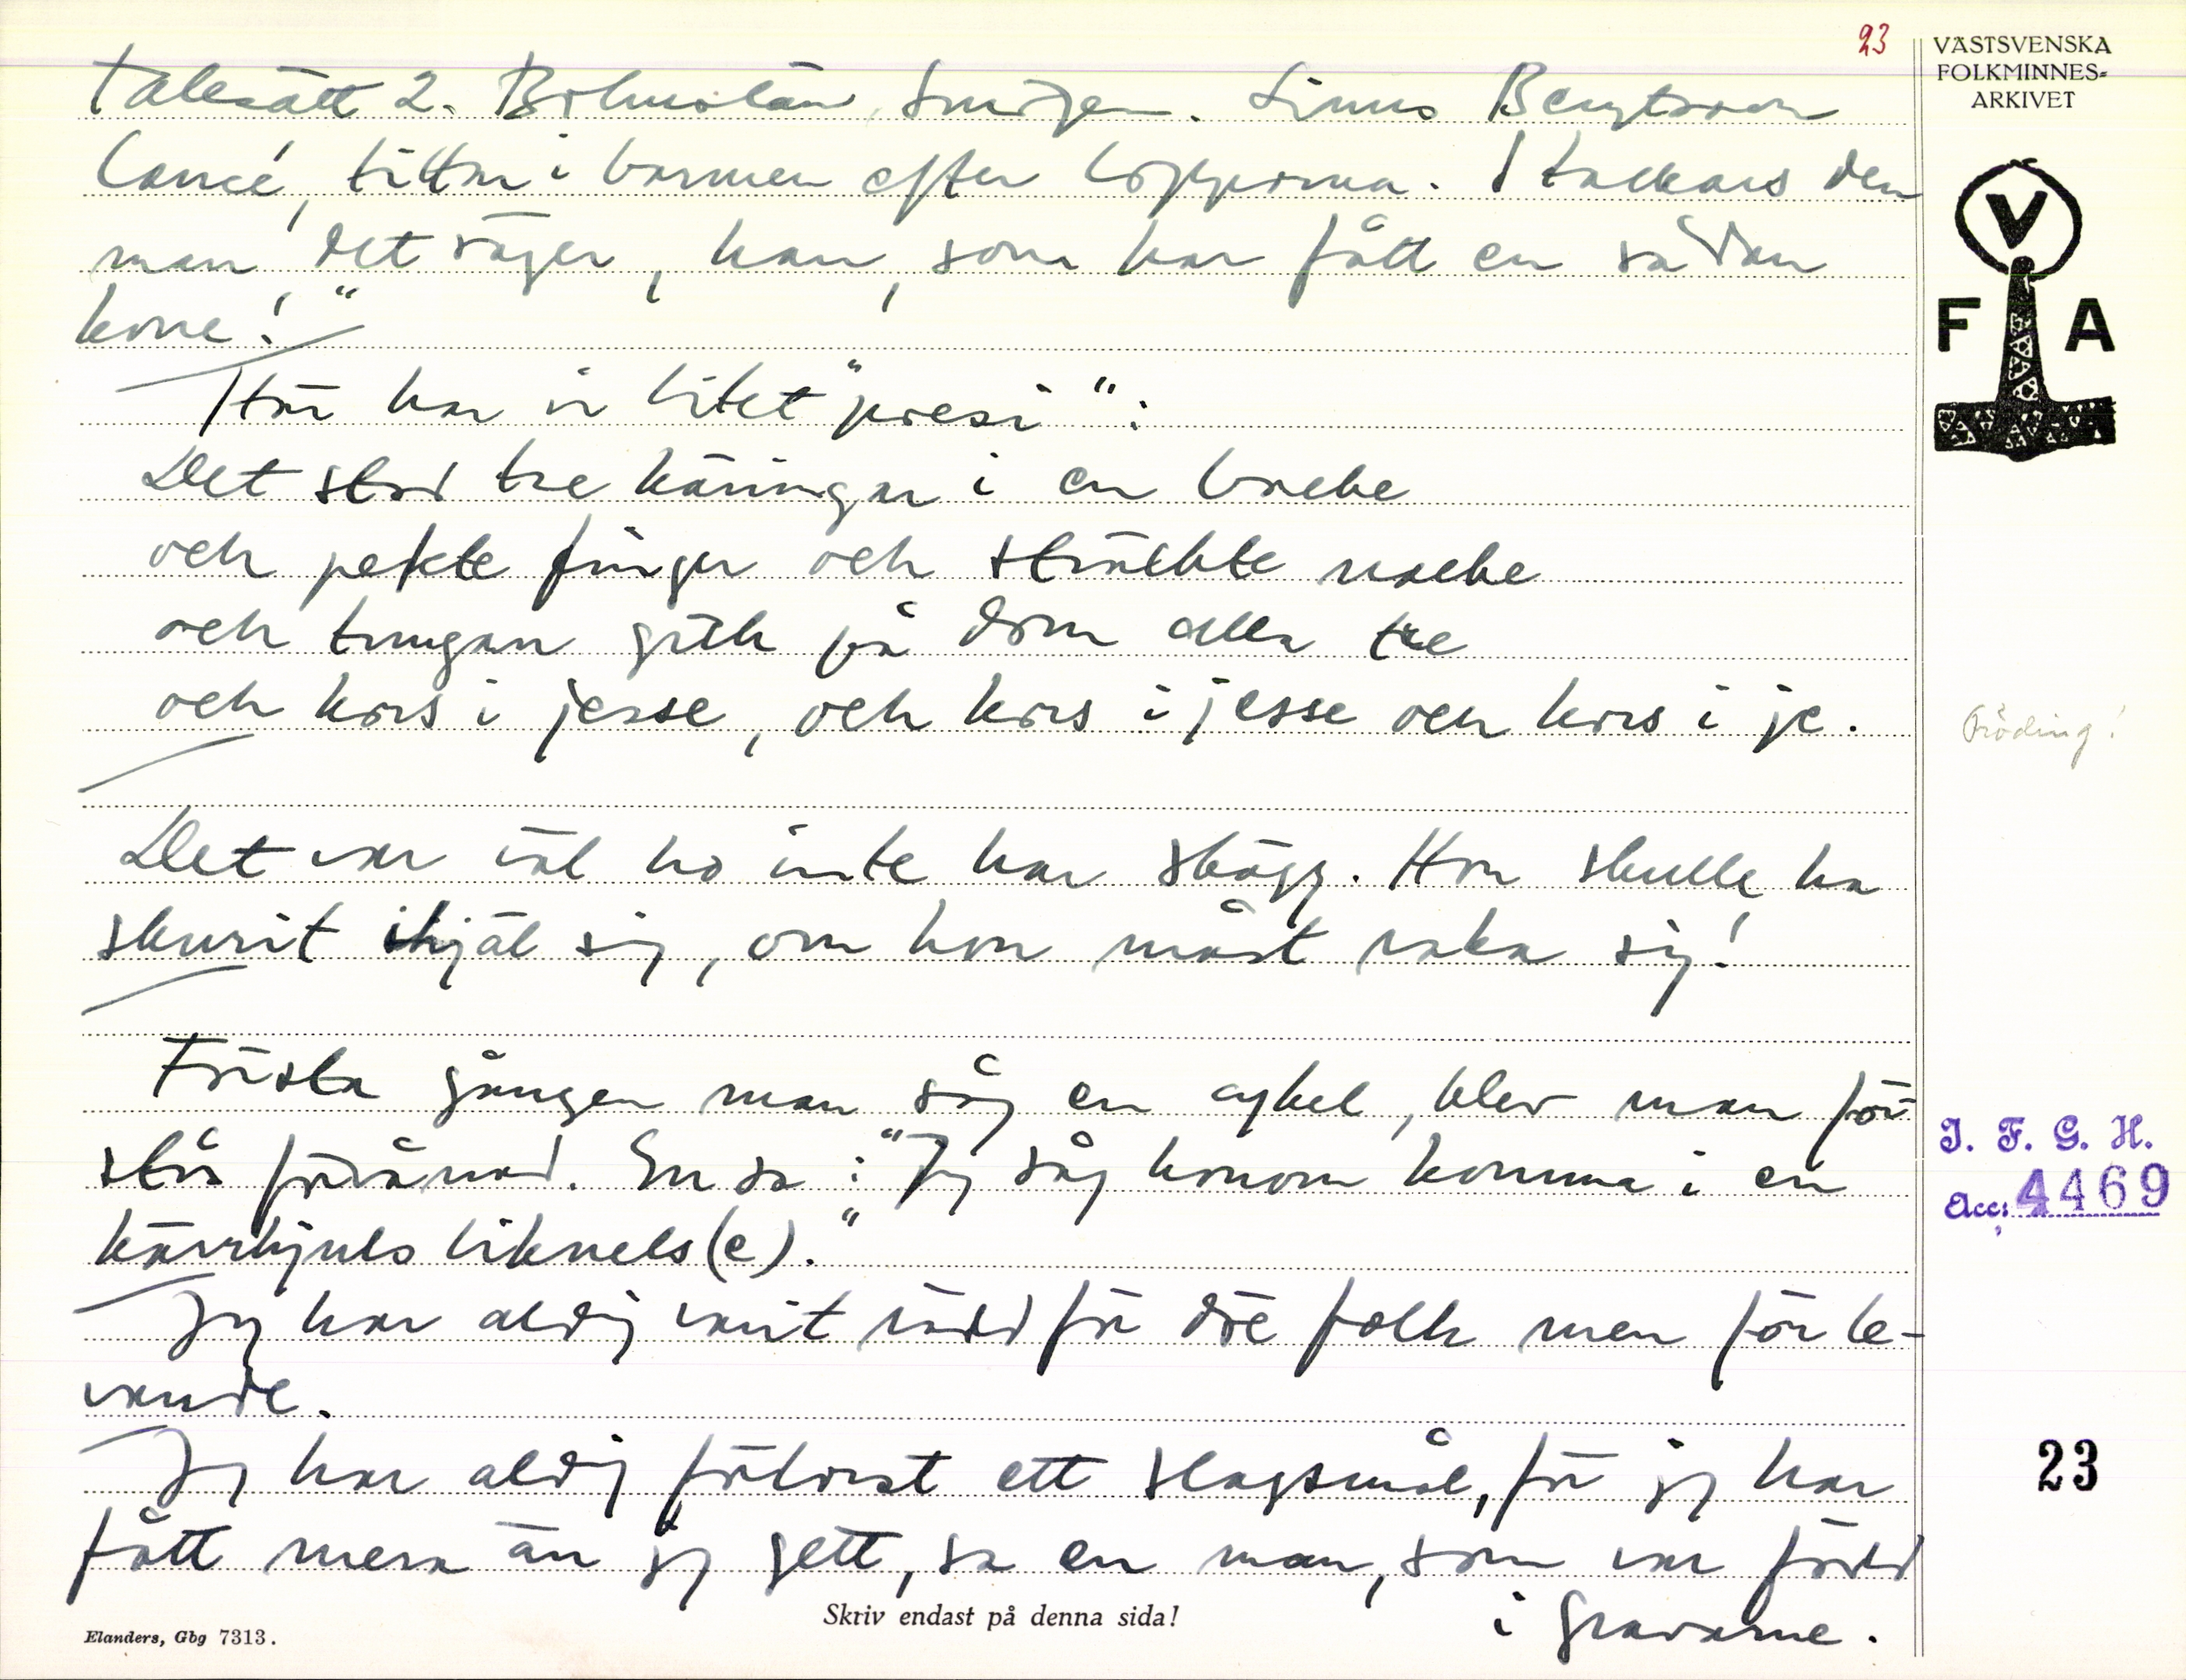 23
VÄSTSVENSKA
FOLKMINNES-
ARKIVET
V
F A
Talesätt 2. Bohuslän, Smögen. Linus Bengtsson
tittar i barmen efter lopporna. Stackars den
man, det säger, han, som har fått en sådan
kone!"
Här har vi litet "poesi":
Det stod tre käringar i en backe
och pekte finger och sträckte nacke
och tungan gick på dom alla tre
och kors i jesse, och kors i jesse och kors i je.
Fröding!
Det var väl ho inte har skägg. Hon skulle ha
skurit ihjäl sig, om hon måst raka sig!
Första gången man såg en cykel, blev man för
stås förvånad. En sa: "Jag såg honom komma i en
kärrhjuls liknels(e)."
Jag har aldrig varit rädd för döe folk men för le-
vande.
Jag har aldrig förlorat ett slagsmål, för jag har
fått mera än jag gett, sa en man, som var född
i Gravarne.
I. F. G. H.
Acc: 4469
23
Skriv endast på denna sida!
Elanders, Gbg 7313.